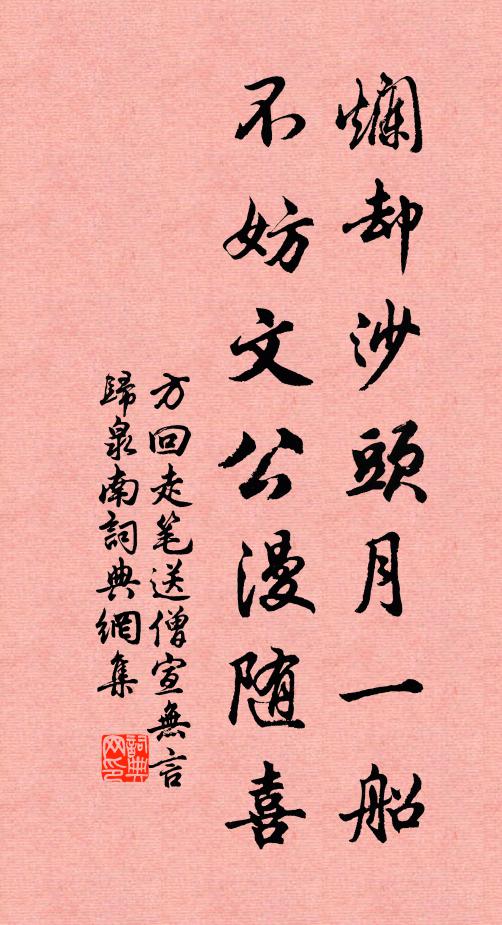 爛却沙頭月一船
不妨文公漫随喜
方回走笔送僧宣無言
歸泉南詞典網集
詞典
网印